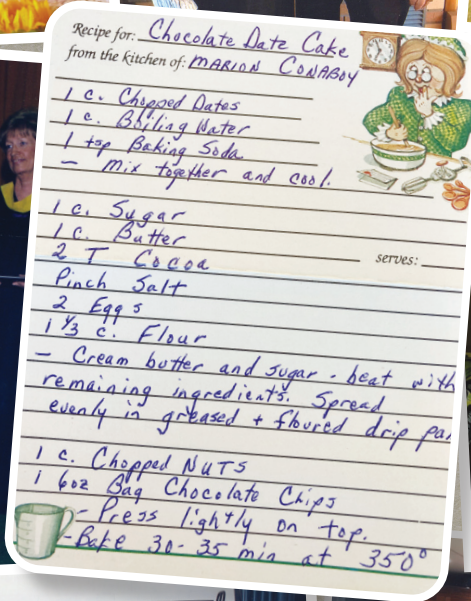 Recipe for: Chocolate Date Cake
from the kitchen of: MARION CONABOY
1 c. Chopped Dates
1 c. Boiling Water
1 tsp Baking Soda
- mix together and cool.
1 c. Sugar
1 c. Butter
2 T Cocoa
serves:
Pinch Salt
2 Eggs
1 1/3 c. Flour
- Cream butter and sugar - beat with
remaining ingredients. Spread
evenly in greased + floured drip pan
1 c. Chopped NUTS
1 6oz Bag Chocolate Chips
- Press lightly on top.
- Bake 30-35 min at 350°